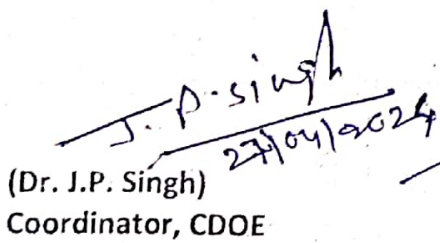 J. P. Singh
27/04/2024
(Dr. J.P. Singh)
Coordinator, CDOE